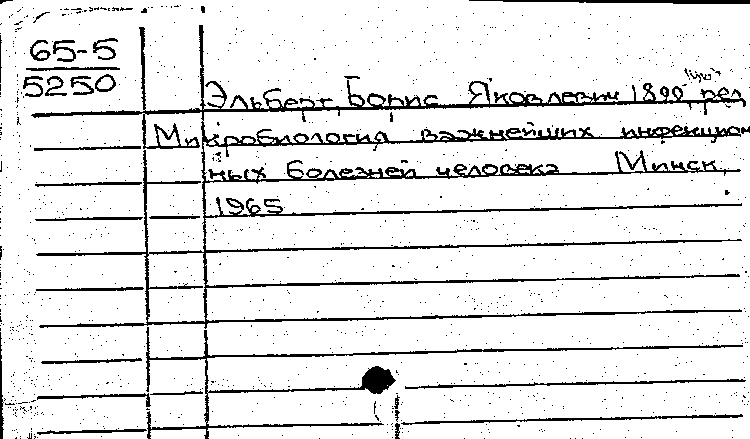 65-5
5250
Эльберт, Борис Яковлевич 1890, ред.
Микробиология важнейших инфекцион
ных болезней человека Минск,
1965